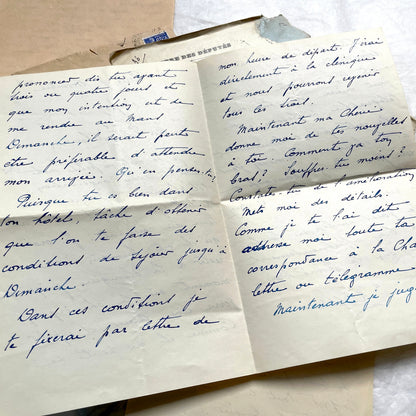 RE DES DÉPUTÉS
prononcer dis tu ayant
trois ou quatre jours et
que mon intention est de
me rendre au Mans
Dimanche, il serait peut
être préférable d'attendre
mon arrivée. Qu'en penses-tu
Puisque tu es bien dans
ton hôtel, tâche d'obtenir
que l'on te fasse des
conditions de séjour jusqu'à
Dimanche.
Dans ces conditions je
te fixerai par lettre de
mon heure de départ. J'irai
directement à la clinique
et nous pourrons revenir
tous les trois.
Maintenant ma Chérie
donne moi de tes nouvelles
à toi. Comment va ton
bras? Souffres tu moins?
Constates-tu de l'amélioration
Mets moi des détails.
Comme je te l'ai dit
adresse moi toute ta
correspondance à la Cha
lettre ou télégramme
Maintenant je juge